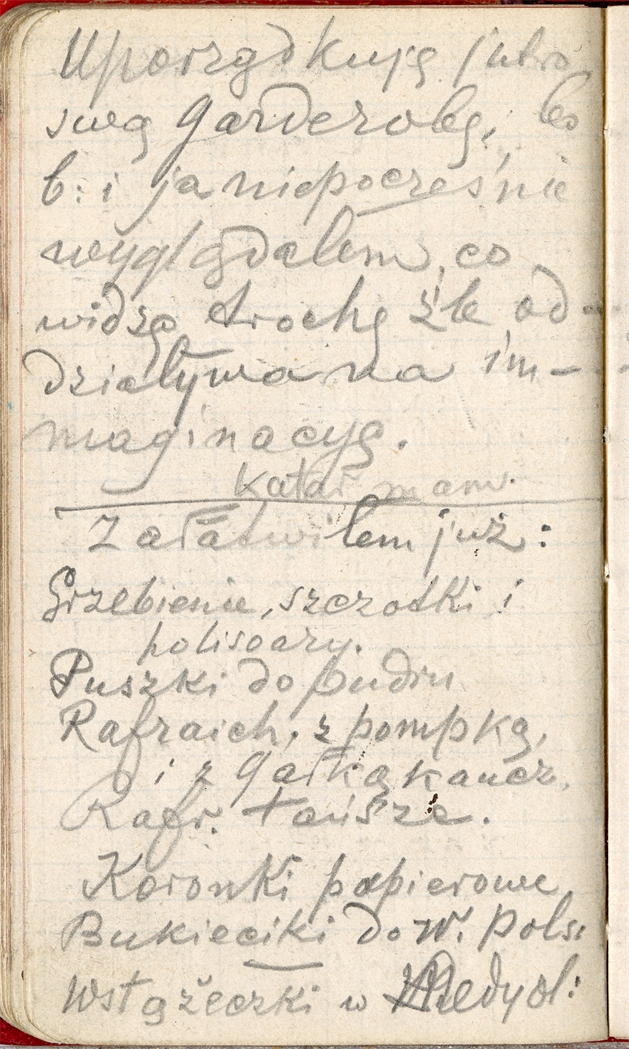 Uporządkuję jutro
swą garderobę, bo
b: i ja niepocześnie
wyglądałem, co
widzę trochę źle od-
działywa na im-
maginacyę.
Katar mam.
Załatwiłem już:
Grzebienie, szczotki i
polisoary.
Puszki do pudru
Rafraich. z pompką,
i z gałką kaucz.
Rafr. tańsze.
Koronki papierowe
Bukieciki do W. Pols:
Wstążeczki w Medyol: